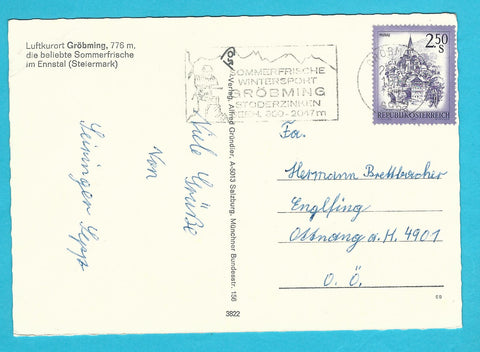 Luftkurort Gröbming, 776 m,
die beliebte Sommerfrische
im Ennstal (Steiermark)
SOMMERFRISCHE
WINTERSPORT
GRÖBMING
STODERZINKEN
2047 m
MURAU
2.50
S
REPUBLIK ÖSTERREICH
Viele Grüße
von
Verlag Alfred Gründler, A-5013 Salzburg, Münchner Bundesstr. 156
3822
Fa.
Hermann Brettbacher
Englfing
Ottnang a. H. 4901
O. Ö.